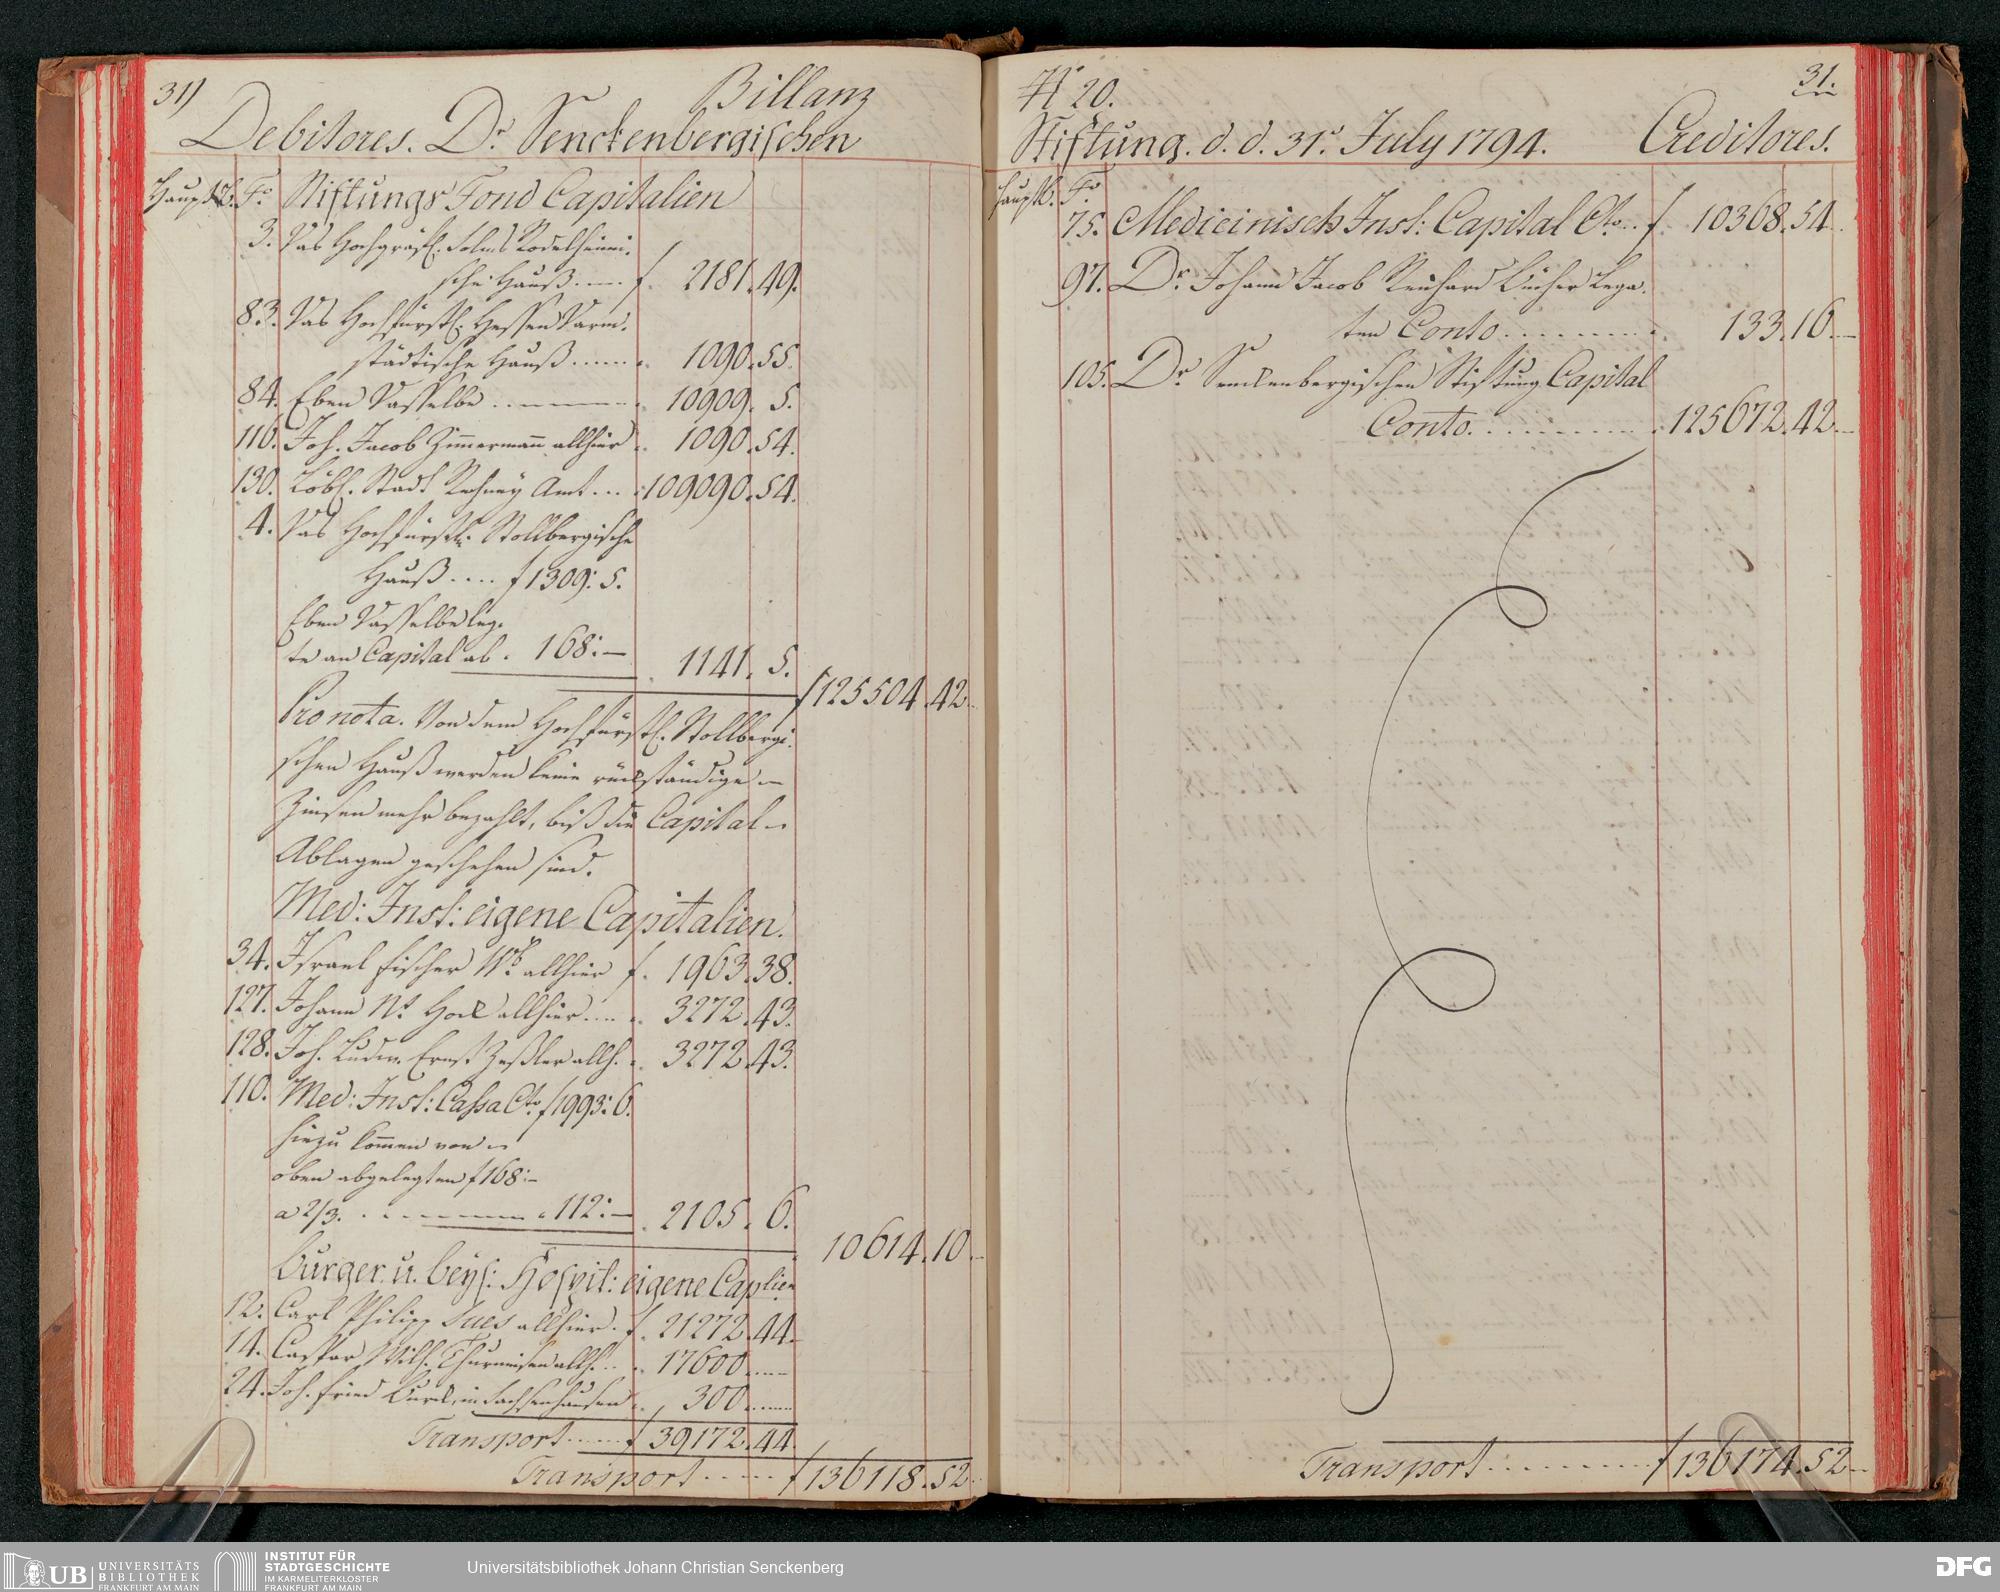 31)
Billanz
Debitores. Dr. Senckenbergischen
Hauptb. Fo. Stiftungs Fond Capitalien
3. Das Hochgräfl. Solms Rödelheimi.
sche Hauß .... f. 2181.49.
83. Das Hochfürstl. Hessen Darm.
städtische Hauß ...... 1090.55.
84. Eben Dasselbe ........ 10909. 5.
116. Joh. Jacob Zimmermann allhier . 1090.54.
130. Löbl. Stadt Rechney Amt .... 109090.54.
4. Das Hochfürstl. Stollbergische
Hauß .... f 1309: 5.
Eben Dasselbe leg.
te an Capital ab . 168:—
1141. 5.
f 125504.42.
Pro nota. Von dem Hochfürstl. Stollbergi.
schen Hauß werden keine rückständige
Zinsen mehr bezahlt, biß die Capital
Ablagen geschehen sind.
Med: Inst: eigene Capitalien.
34. Israel Fischer Wb. allhier f. 1963.38.
127. Johann Ns. Hock allhier .... 3272.43.
128. Joh. Ludw. Ernst Zeßler allh. . 3272.43.
110. Med: Inst: Cassa Cto. f 1993: 6.
hiezu kommen von
oben abgelegten f 168:—
a 2/3. ......... 112:— . 2105. 6.
10614.10.
Burger. u. beys: Hospit: eigene Caplien
12. Carl Philipp allhier. f. 21272.44.
14. Caspar Wilh. Thurneisen allh. .. 17600.....
24. Joh. Fried in Sachsenhausen . 300.....
Transport ..... f 39172.44.
Transport ..... f 136118.52.
No. 20.
31.
Stiftung. d. d. 31t. July 1794. Creditores.
Hauptb. Fo.
75. Medicinisch Inst: Capital Cto... f. 10368.54.
97. Dr. Johann Jacob Reichard Bücher Lega.
ten Conto .......... 133.16.
105. Dr. Senckenbergischen Stiftung Capital
Conto ........... 125672.42.
Transport .......... f 136174.52.
UB UNIVERSITÄTS
BIBLIOTHEK
FRANKFURT AM MAIN
INSTITUT FÜR
STADTGESCHICHTE
IM KARMELITERKLOSTER
FRANKFURT AM MAIN
Universitätsbibliothek Johann Christian Senckenberg
DFG